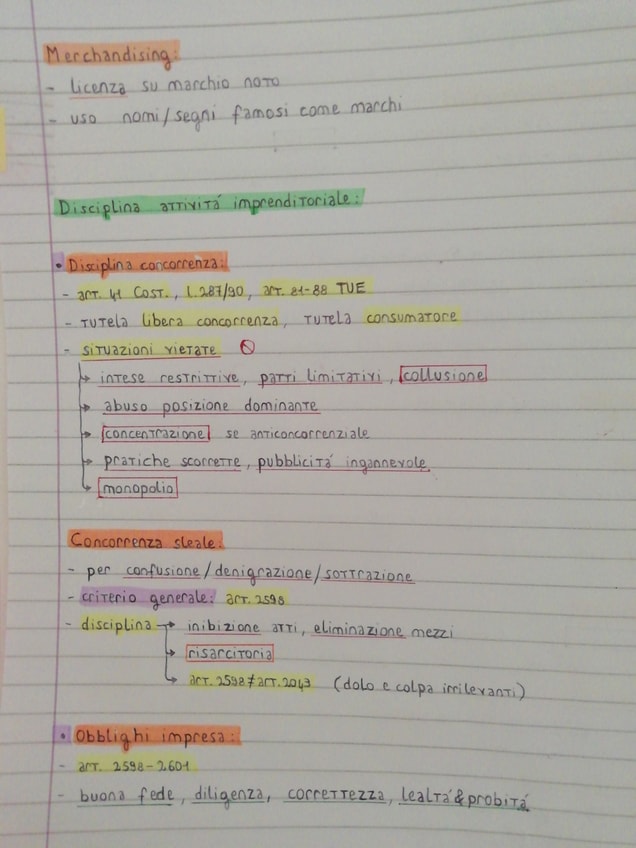 Merchandising:
- licenza su marchio noto
- uso nomi/segni famosi come marchi
Disciplina attività imprenditoriale:
• Disciplina concorrenza:
- art. 41 Cost., l. 287/90, art. 81-88 TUE
- tutela libera concorrenza, tutela consumatore
- situazioni vietate
→ intese restrittive, patti limitativi, collusione
→ abuso posizione dominante
→ concentrazione se anticoncorrenziale
→ pratiche scorrette, pubblicità ingannevole
→ monopolio
Concorrenza sleale:
- per confusione/denigrazione/sottrazione
- criterio generale: art. 2598
- disciplina → inibizione atti, eliminazione mezzi
→ risarcitoria
→ art. 2598≠art. 2043 (dolo e colpa irrilevanti)
• Obblighi impresa:
- art. 2598-2601
- buona fede, diligenza, correttezza, lealtà & probità